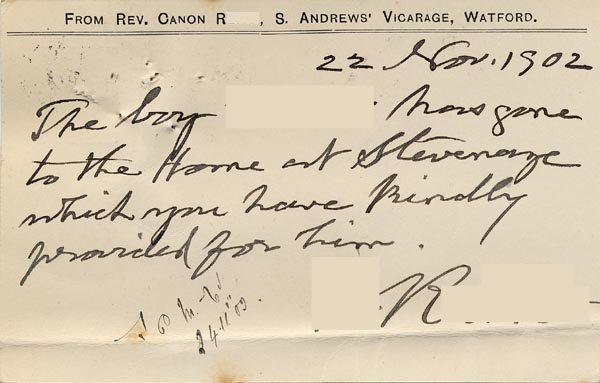 FROM REV. CANON R S. ANDREWS' VICARAGE, WATFORD.
22 Nov. 1902
The boy has gone
to the Home at Stevenage
which you have kindly
provided for him.
R
24.11.02.